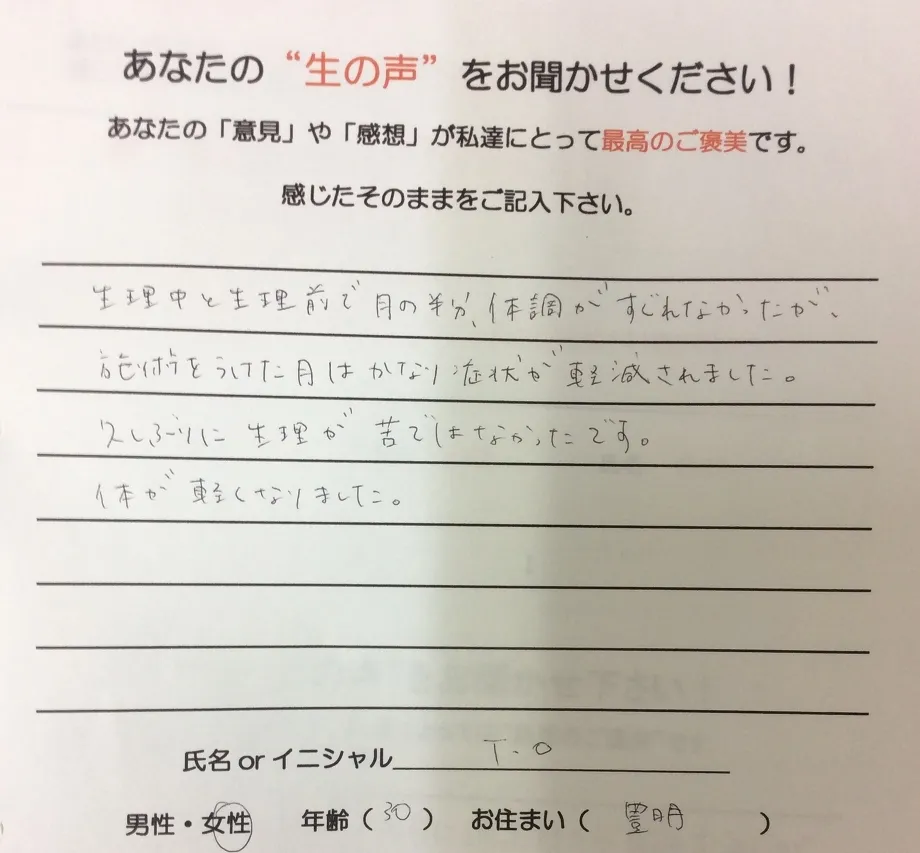 あなたの“生の声”をお聞かせください！
あなたの「意見」や「感想」が私達にとって最高のご褒美です。
感じたそのままをご記入下さい。
生理中と生理前で月の半分、体調がすぐれなかったが、
施術をうけた月はかなり症状が軽減されました。
久しぶりに生理が苦ではなかったです。
体が軽くなりました。
氏名 or イニシャル T.O
男性・女性 年齢（30） お住まい（豊明）